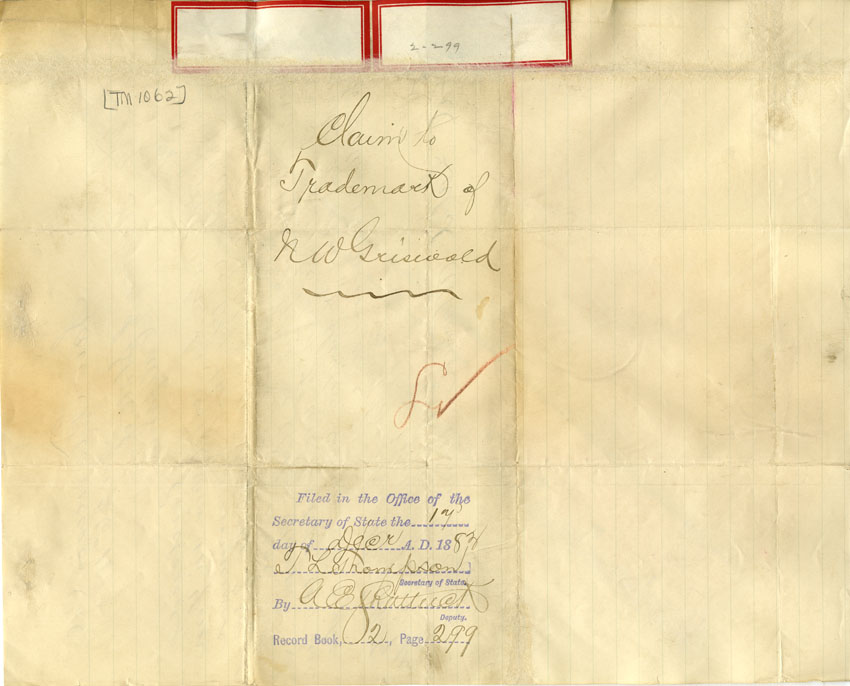 2-299
[TM 1062]
Claim to
Trademark of
N W Griswold
Filed in the Office of the
Secretary of State the 17
day of Decr A. D. 18
T L Thompson
Secretary of State.
By A E Shattuck
Deputy.
Record Book, 2, Page 299